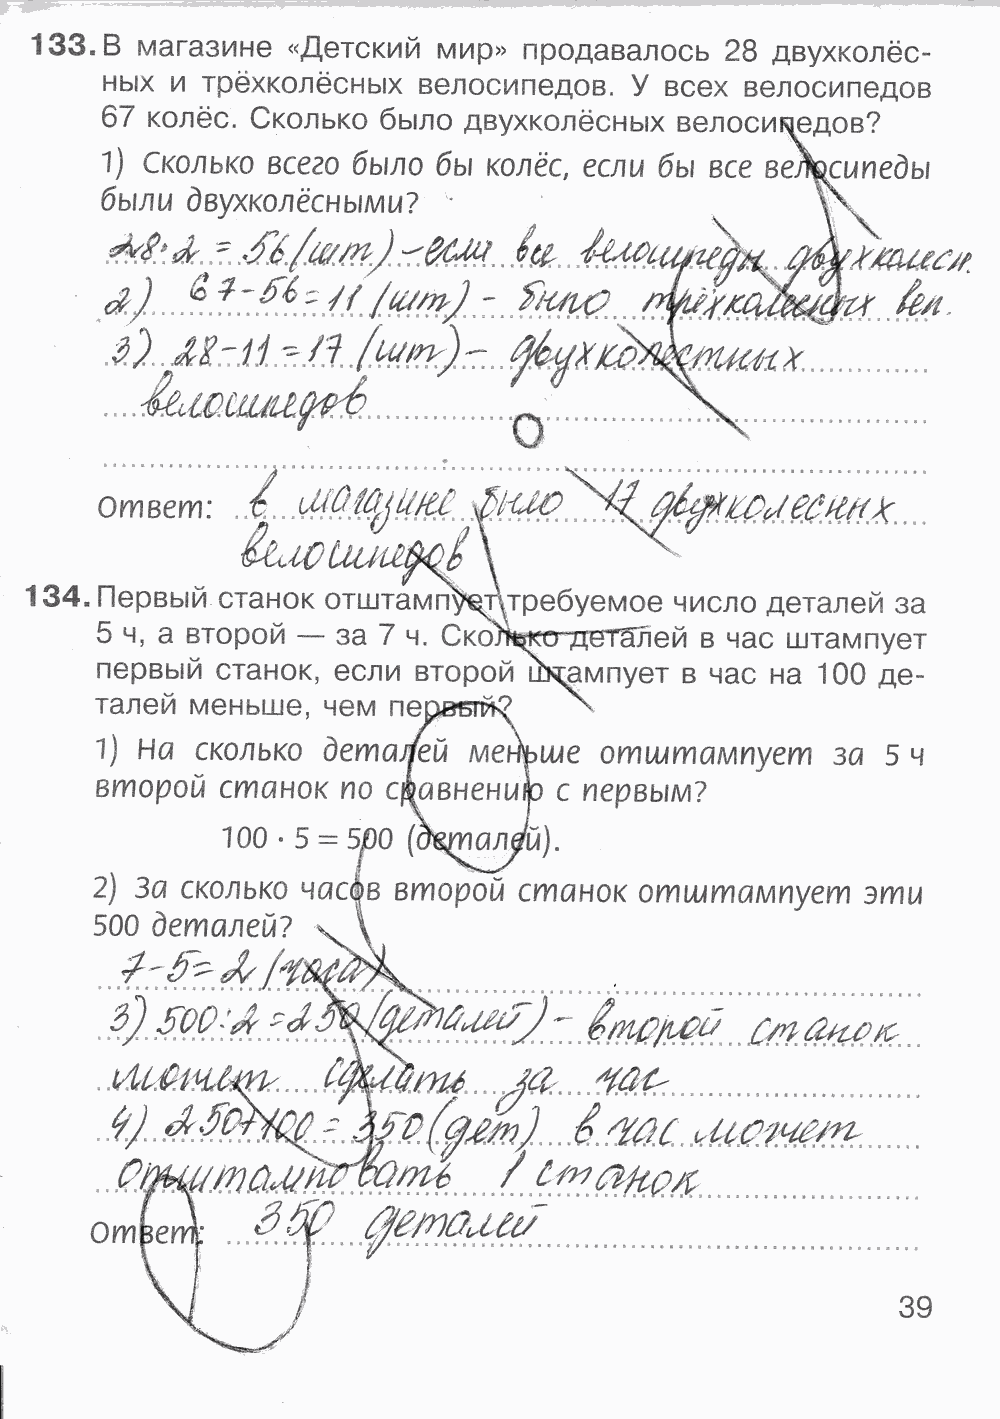 133. В магазине «Детский мир» продавалось 28 двухколёс-
ных и трёхколёсных велосипедов. У всех велосипедов
67 колёс. Сколько было двухколёсных велосипедов?
1) Сколько всего было бы колёс, если бы все велосипеды
были двухколёсными?
28·2 = 56 (шт) – если все велосипеды двухколесн.
2) 67-56=11 (шт) – было трёхколесных вел.
3) 28-11=17 (шт) – двухколестных
велосипедов
Ответ: в магазине было 17 двухколесных
велосипедов
134. Первый станок отштампует требуемое число деталей за
5 ч, а второй — за 7 ч. Сколько деталей в час штампует
первый станок, если второй штампует в час на 100 де-
талей меньше, чем первый?
1) На сколько деталей меньше отштампует за 5 ч
второй станок по сравнению с первым?
100 · 5 = 500 (деталей).
2) За сколько часов второй станок отштампует эти
500 деталей?
7-5=2 (часа)
3) 500:2=250 (деталей) – второй станок
может сделать за час
4) 250+100=350 (дет) в час может
отштамповать 1 станок
Ответ: 350 деталей
39